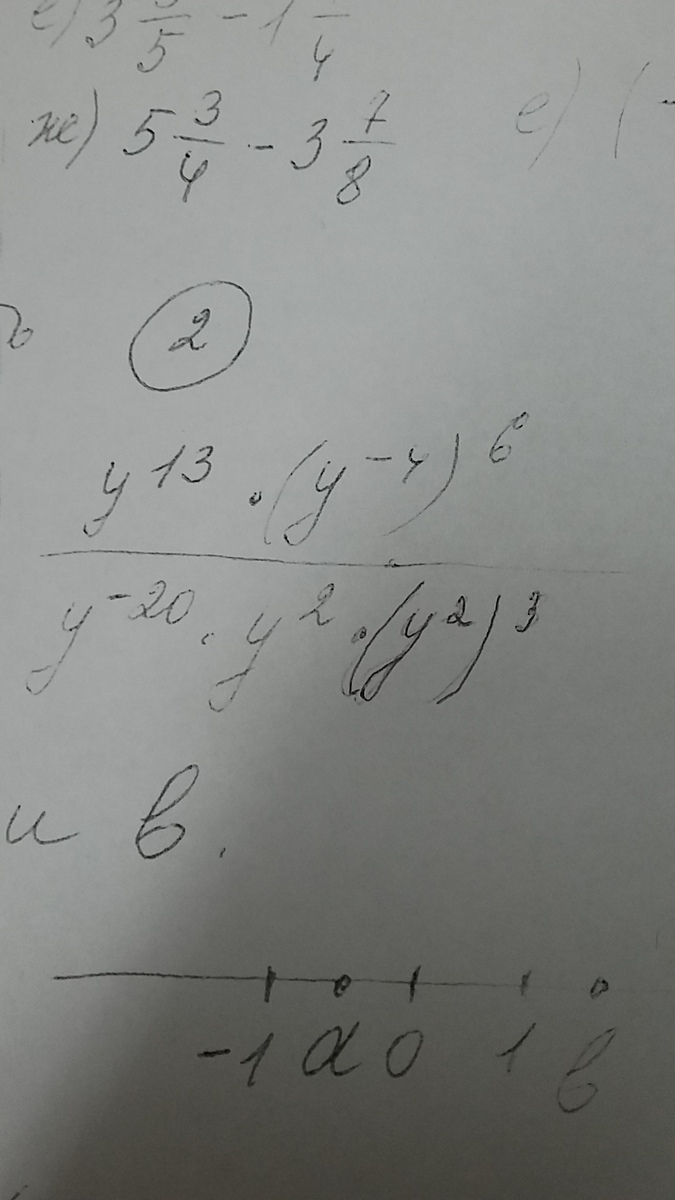 е) 3 /5 - 1 /4
ж) 5 3/4 - 3 7/8 е) (-
2
y^13 · (y^-4)^6
y^-20 · y^2 · (y^2)^3
и в.
-1 a 0 1 в